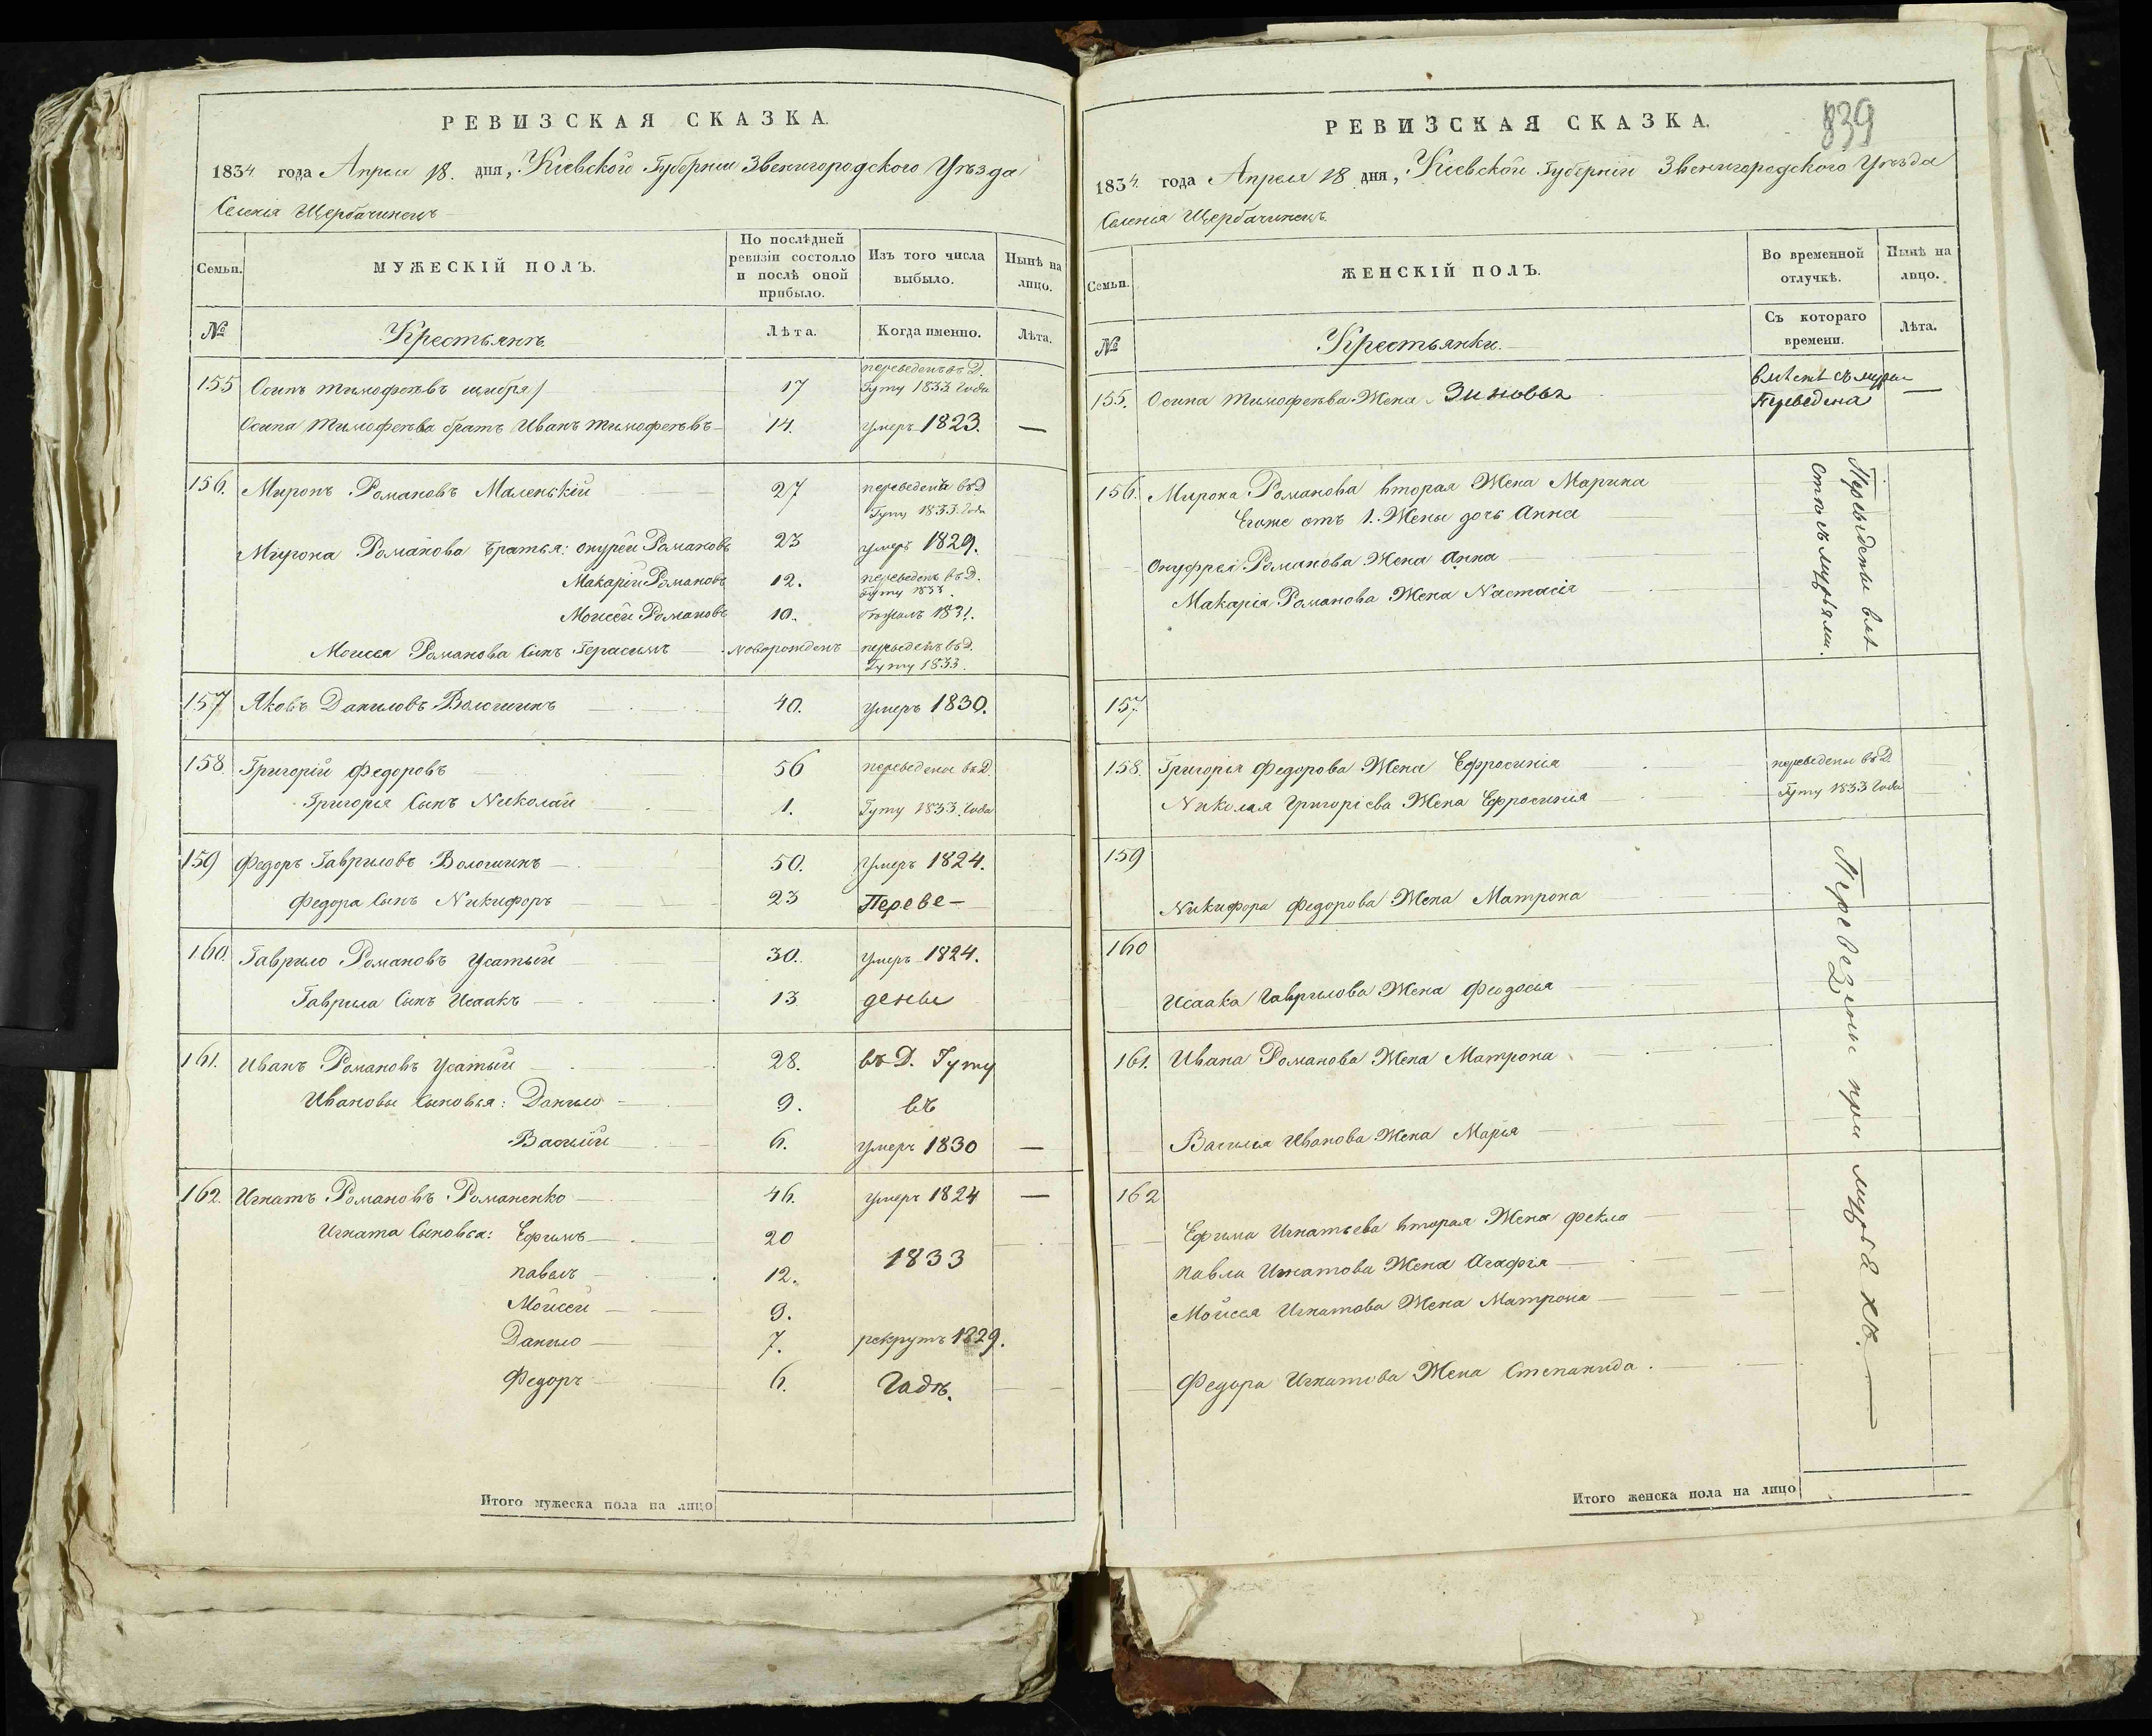 РЕВИЗСКАЯ СКАЗКА.
1834 года Апреля 18. дня, Кіевской Губерніи Звенигородского Уѣзда
Селенія Щербачинецъ
Семьи.
МУЖЕСКІЙ ПОЛЪ.
По послѣдней ревизіи состояло и послѣ оной прибыло.
Изъ того числа выбыло.
Нынѣ на лицо.
№
Крестьянъ.
Лѣта.
Когда именно.
Лѣта.
155 Осипъ Тимофеевъ 17 переведенъ въ Д. Гуту 1833 года
Осипа Тимофеева братъ Иванъ Тимофеевъ 14. умеръ 1823. —
156. Миронъ Романовъ Маленькій 27 переведенъ въ Д Гуту 1833. года
Мирона Романова братья: Онуфрей Романовъ 23 умеръ 1829.
Макарій Романовъ 12. переведенъ въ Д. Гуту 1833.
Моисей Романовъ 10. бѣжалъ 1831.
Моисея Романова сынъ Герасимъ новорожденъ переведенъ въ Д. Гуту 1833.
157 Яковъ Даниловъ Волошинъ 40. умеръ 1830.
158 Григорій Федоровъ 56 переведены въ Д.
Григорія Сынъ Николай 1. Гуту 1833. года
159 Федоръ Гавриловъ Волошинъ 50. умеръ 1824.
Федора Сынъ Никифоръ 23 Переве-
160. Гаврило Романовъ Усатый 30. умеръ 1824.
Гаврила Сынъ Исаакъ 13 дены
161. Иванъ Романовъ Усатый 28. въ Д. Гуту
Ивановы Сыновья: Данило 9. въ
Василій 6. умеръ 1830 —
162. Игнатъ Романовъ Романенко 46. умеръ 1824 —
Игната Сыновья: Ефимъ 20
1833
Павелъ 12.
Мойсей 9.
Данило 7. рекрутъ 1829.
Федоръ 6. Годѣ.
Итого мужеска пола на лицо
839
РЕВИЗСКАЯ СКАЗКА.
1834. года Апреля 18 дня, Кіевской Губерніи Звенигородского Уѣзда
Селенія Щербачинецъ.
Семьи.
ЖЕНСКІЙ ПОЛЪ.
Во временной отлучкѣ.
Нынѣ на лицо.
№
Крестьянки.
Съ котораго времени.
Лѣта.
155. Осипа Тимофеева Жена Зиновья вмѣстѣ съ мужем Переведена —
156. Мирона Романова вторая Жена Марина
Егоже отъ 1. Жены дочь Анна
Онуфрія Романова Жена Анна
Макарія Романова Жена Настасія
Переведены вмѣ
стѣ съ мужьями.
157.
158. Григорія Федорова Жена Ефросинія переведены въ Д.
Николая Григоріева Жена Ефросинія Гуту 1833 года
159
Никифора Федорова Жена Матрона
160
Исаака Гаврилова Жена Феодосія
161. Ивана Романова Жена Матрона
Василія Иванова Жена Марія
162
Ефима Игнатьева вторая Жена Фекла
Павла Игнатова Жена Агафія
Мойсея Игнатова Жена Матрона
Федора Игнатова Жена Степанида.
Переведены при мужьяхъ. —
Итого женска пола на лицо